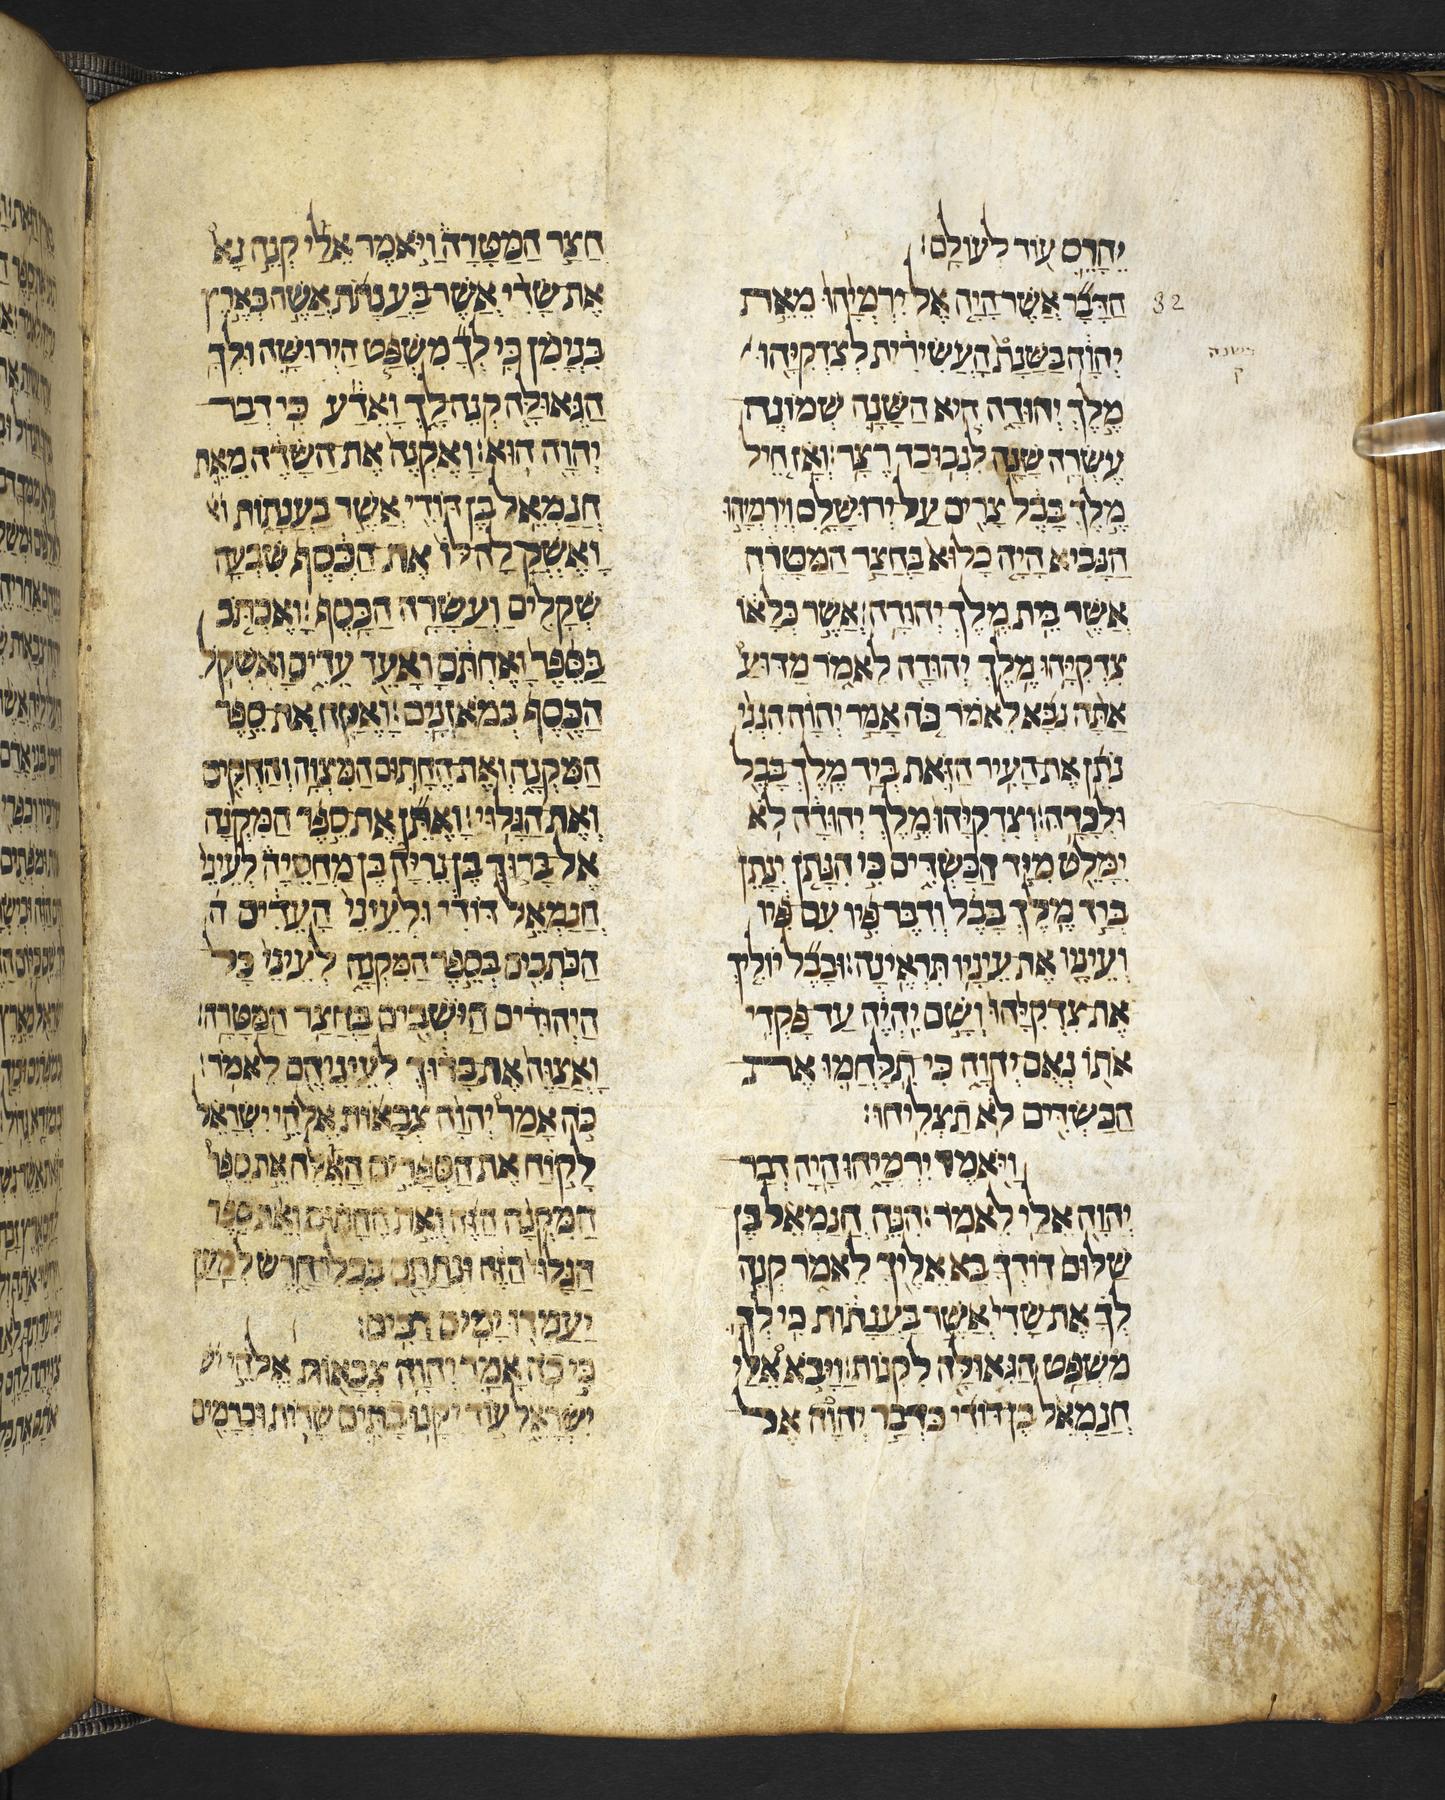 יֵהָרֵס עוֹד לְעוֹלָם׃
הַדָּבָר אֲשֶׁר הָיָה אֶל יִרְמְיָהוּ מֵאֵת
יְהוָה בַּשָּׁנַת הָעֲשִׂירִית לְצִדְקִיָּהוּ
מֶלֶךְ יְהוּדָה הִיא הַשָּׁנָה שְׁמוֹנֶה
עֶשְׂרֵה שָׁנָה לִנְבוּכַדְרֶאצַּר׃ וְאָז חֵיל
מֶלֶךְ בָּבֶל צָרִים עַל יְרוּשָׁלִָם וְיִרְמְיָהוּ
הַנָּבִיא הָיָה כָלוּא בַּחֲצַר הַמַּטָּרָה
אֲשֶׁר בֵּית מֶלֶךְ יְהוּדָה׃ אֲשֶׁר כְּלָאוֹ
צִדְקִיָּהוּ מֶלֶךְ יְהוּדָה לֵאמֹר מַדּוּעַ
אַתָּה נִבָּא לֵאמֹר כֹּה אָמַר יְהוָה הִנְנִי
נֹתֵן אֶת הָעִיר הַזֹּאת בְּיַד מֶלֶךְ בָּבֶל
וּלְכָדָהּ׃ וְצִדְקִיָּהוּ מֶלֶךְ יְהוּדָה לֹא
יִמָּלֵט מִיַּד הַכַּשְׂדִּים כִּי הִנָּתֹן יִנָּתֵן
בְּיַד מֶלֶךְ בָּבֶל וְדִבֶּר פִּיו עִם פִּיו
וְעֵינָיו אֶת עֵינָיו תִּרְאֶינָה׃ וּבָבֶל יוֹלִיךְ
אֶת צִדְקִיָּהוּ וְשָׁם יִהְיֶה עַד פָּקְדִי
אֹתוֹ נְאֻם יְהוָה כִּי תִלָּחֲמוּ אֶת
הַכַּשְׂדִּים לֹא תַצְלִיחוּ׃
וַיֹּאמֶר יִרְמְיָהוּ הָיָה דְבַר
יְהוָה אֵלַי לֵאמֹר׃ הִנֵּה חֲנַמְאֵל בֶּן
שַׁלּוּם דֹּדְךָ בָּא אֵלֶיךָ לֵאמֹר קְנֵה
לְךָ אֶת שָׂדִי אֲשֶׁר בַּעֲנָתוֹת כִּי לְךָ
מִשְׁפַּט הַגְּאוּלָּה לִקְנוֹת׃ וַיָּבֹא אֵלַי
חֲנַמְאֵל בֶּן דּוֹדִי כִּדְבַר יְהוָה אֶל
32
בשנה
ק
חֲצַר הַמַּטָּרָה וַיֹּאמֶר אֵלַי קְנֵה נָא
אֶת שָׂדִי אֲשֶׁר בַּעֲנָתֹת אֲשֶׁר בְּאֶרֶץ
בִּנְיָמִן כִּי לְךָ מִשְׁפַּט הַיְרוּשָּׁה וּלְךָ
הַגְּאוּלָּה קְנֵה לָךְ וָאֵדַע כִּי דְבַר
יְהוָה הוּא׃ וָאֶקְנֶה אֶת הַשָּׂדֶה מֵאֵת
חֲנַמְאֵל בֶּן דּוֹדִי אֲשֶׁר בַּעֲנָתוֹת
וָאֶשְׁקֲלָה לּוֹ אֶת הַכֶּסֶף שִׁבְעָה
שְׁקָלִים וַעֲשָׂרָה הַכָּסֶף׃ וָאֶכְתֹּב
בַּסֵּפֶר וָאֶחְתֹּם וָאָעֵד עֵדִים וָאֶשְׁקֹל
הַכֶּסֶף בְּמֹאזְנָיִם׃ וָאֶקַּח אֶת סֵפֶר
הַמִּקְנָה וְאֶת הֶחָתוּם הַמִּצְוָה וְהַחֻקִּים
וְאֶת הַגָּלוּי׃ וָאֶתֵּן אֶת סֵפֶר הַמִּקְנָה
אֶל בָּרוּךְ בֶּן נֵרִיָּה בֶּן מַחְסֵיָה לְעֵינֵי
חֲנַמְאֵל דּוֹדִי וּלְעֵינֵי הָעֵדִים ה
הַכֹּתְבִים בְּסֵפֶר הַמִּקְנָה לְעֵינֵי כָּל
הַיְּהוּדִים הַיֹּשְׁבִים בַּחֲצַר הַמַּטָּרָה׃
וָאֲצַוֶּה אֶת בָּרוּךְ לְעֵינֵיהֶם לֵאמֹר׃
כֹּה אָמַר יְהוָה צְבָאוֹת אֱלֹהֵי יִשְׂרָאֵל
לָקוֹחַ אֶת הַסְּפָרִים הָאֵלֶּה אֵת סֵפֶר
הַמִּקְנָה הַזֶּה וְאֵת הֶחָתוּם וְאֵת סֵפֶר
הַגָּלוּי הַזֶּה וּנְתַתָּם בִּכְלִי חָרֶשׂ לְמַעַן
יַעַמְדוּ יָמִים רַבִּים׃
כִּי כֹה אָמַר יְהוָה צְבָאוֹת אֱלֹהֵי
יִשְׂרָאֵל עוֹד יִקָּנוּ בָתִּים שָׂדוֹת וּכְרָמִים